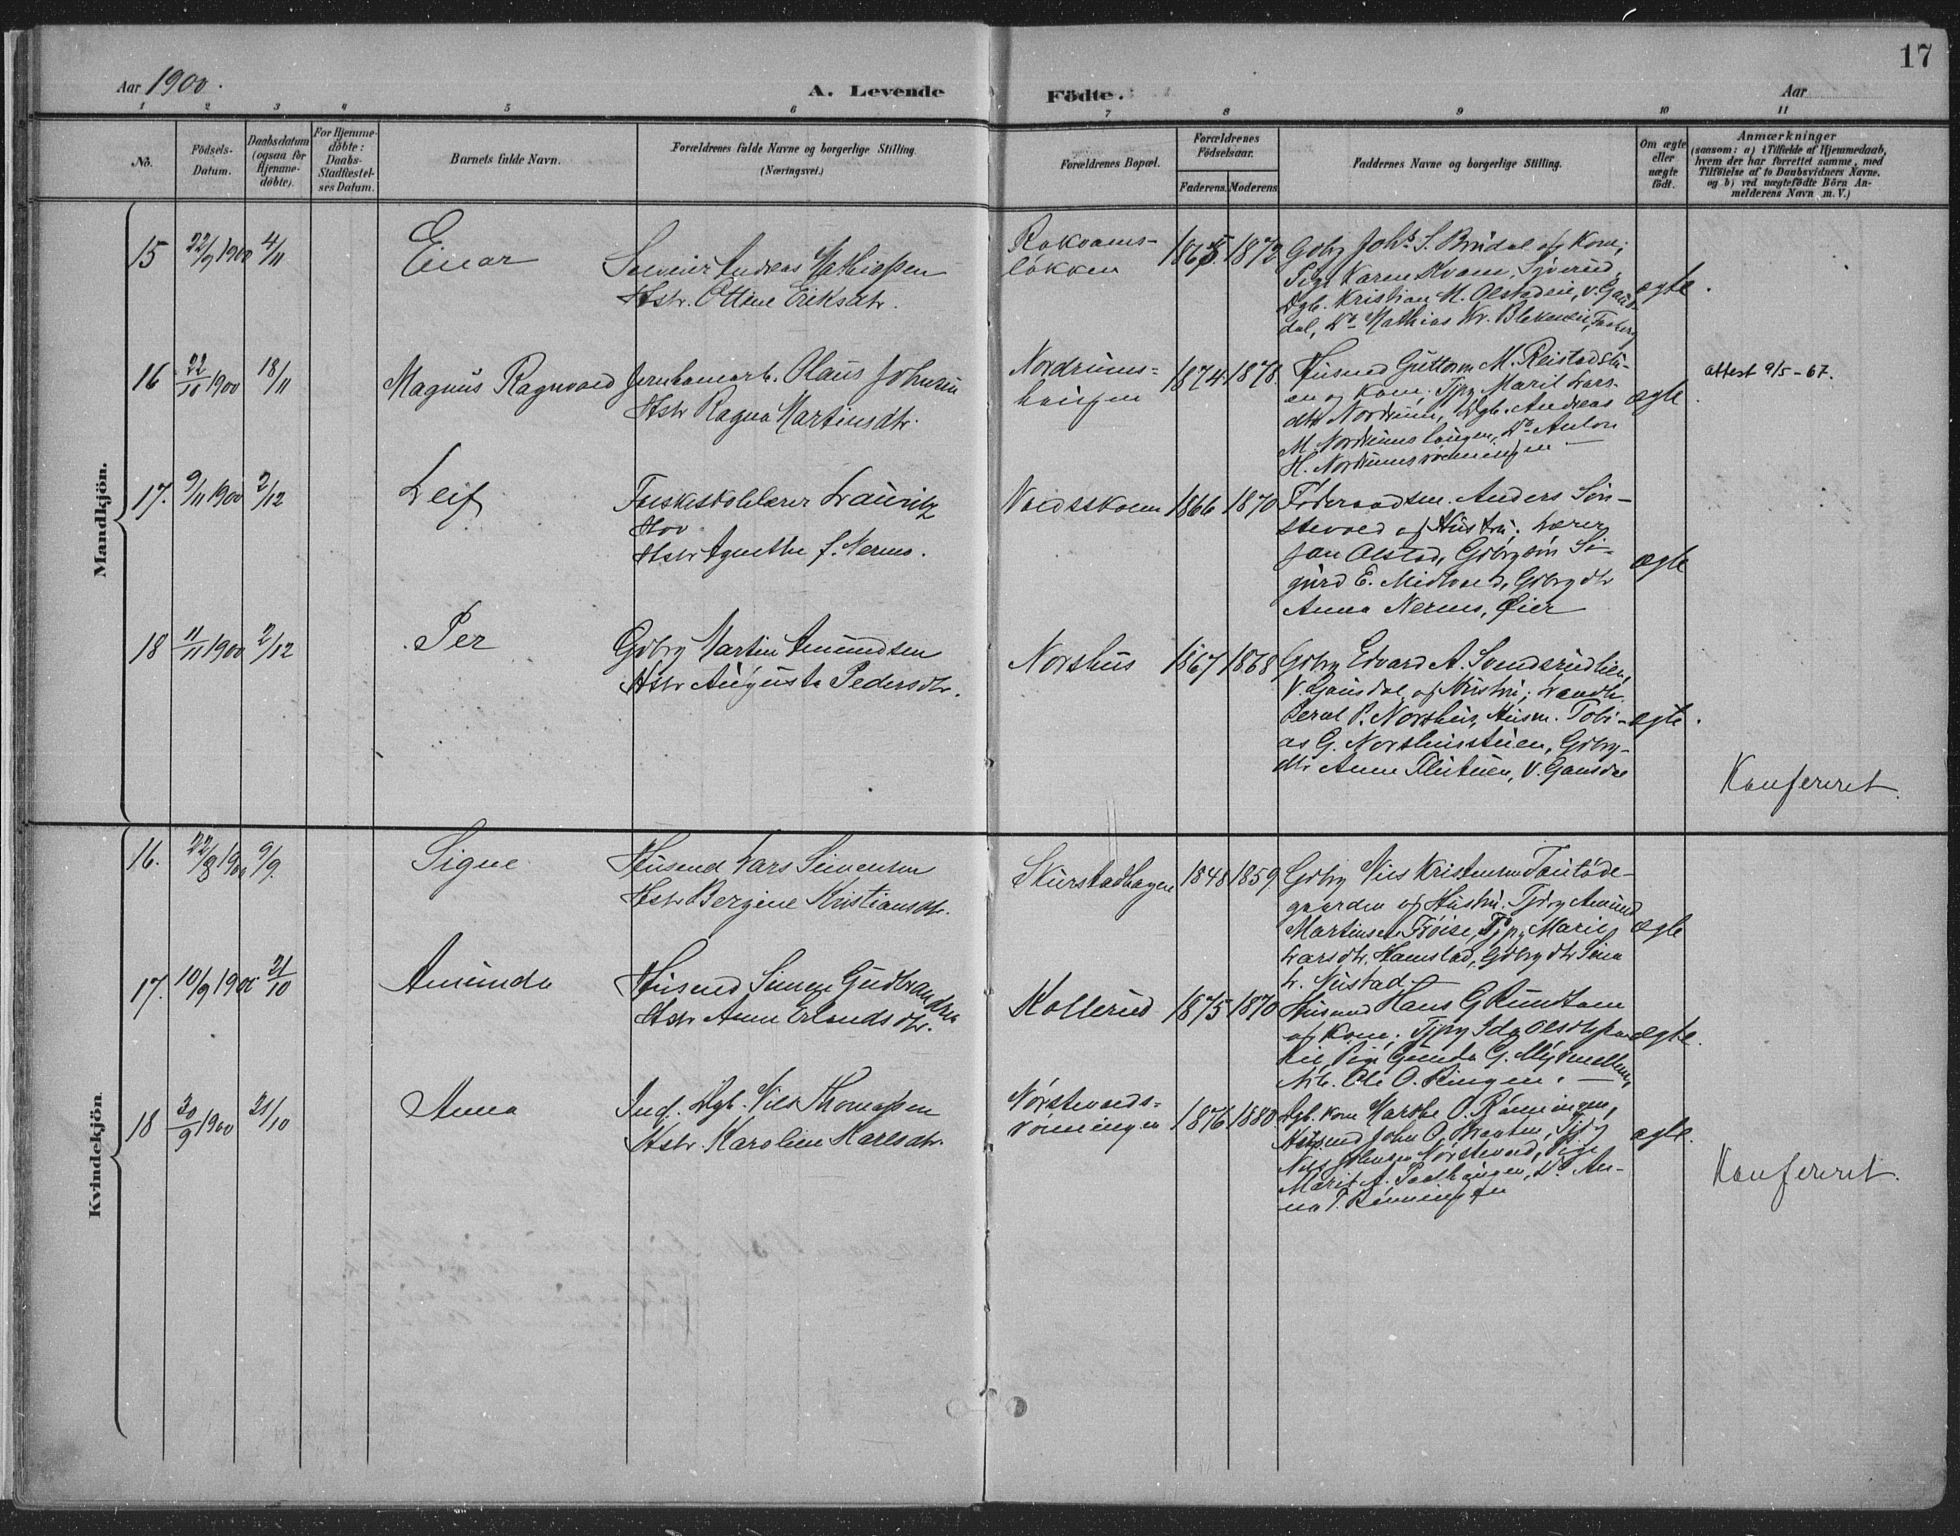 17
Aar 1900.
A. Levende Födte.
Aar
1 2 3 4 5 6 7 8 9 10 11
No.
Födsels-Datum.
Daabsdatum (ogsaa for Hjemmedöbte).
For Hjemmedöbte: Daabs-Stadfæstelses Datum.
Barnets fulde Navn.
Forældrenes fulde Navne og borgerlige Stilling.
(Næringsvei.)
Forældrenes Bopæl.
Forældrenes Födselsaar.
Faderens. Moderens
Faddernes Navne og borgerlige Stilling.
Om ægte eller uægte födt.
Anmærkninger
(saasom: a) i Tilfælde af Hjemmedaab,
hvem der har forrettet samme, med
Tilföielse af to Daabsvidners Navne.
og b) ved uægtefödte Börn An-
melderens Navn m. V.)
Mandkjön.
15 22/9 1900 4/11 Einar
Andreas Mathiassen
Hstr. Ottine Eriksdtr.
Rokvams-
løkken
1872
Gbbr Johs S. Brudal og Kone;
Pige Karen Kvam,
Dgb. Kristian M. Olstadeie, V. Gaus-
dal, Do Mathias Kr.
ægte.
16 22/10 1900 18/11 Magnus Ragnvald
Jernbanearb. Olaus Johnsen
Hstr Ragna Martinsdtr.
Nordrums-
haugen
1874 1878.
Husmd Guttorm M. Reistadstu-
en og Kone; Tjpg Marit Lars-
dtr Nordrum, Dgb. Andreas
M. Nordrumshaugen, Do Anton
H. Nordrumsrønningen —
ægte.
attest 9/5-67.
17. 9/11 1900 2/12 Leif
Folkeskolelærer Lauritz
Hov
Hstr Agnethe f. Nermo.
1866 1870
Føderaadsm. Anders Søn-
stevold og Hustru; Lærer
Jon Olstad, Gbbrsøn Si-
gurd E. Midtvold, Gbbrdtr
Anna Nermo, Øier
ægte
18 11/11 1900 2/12 Per
Gbbr Martin Amundsen
Hstr Augusta Pedersdtr.
Norshus
1867 1868
Gbbr Edvard A. Svendsrudlien,
V. Gausdal og Hustru; Landh.
P. Norshus, Husm. Tobi-
as G. Norshusstuen, Gbbr-
dtr Anne Flutuen, V. Gausdal
ægte.
Konfereret.
Kvindekjön
16. 22/8 1900 9/9. Signe
Husmd Lars Simensen
Hstr Bergine Kristiansdtr.
Skurstadhagen
1848 1859
Gbbr Nils Kristensen
gaarden og Hustru. Tjdr Amund
Martinsen Frøise, Tjpg Marie
Larsdtr. Hamstad, Gbbrdtr
L. Nustad —
ægte
17. 10/9 1900 21/10 Amunda
Husmd Simen Gudbrandsen
Hstr Anne Erlandsdtr.
Kollerud
1875 1870
Husmd Hans G.
og Kone; Tjpg Ida Olsdtr
Pige Gunda G.
Arb. Ole O. Ringen. —
ægte.
18 30/9 1900 21/10 Anna
Ind. Dgb. Nils Thomassen
Hstr. Karoline Karlsdtr.
Nørstevolds-
rønningen
1876 1880.
Dgb. kone Marthe O. Rønningen,
Husmd John O. Braaten, Tjdr
Nils Johnsen Nørstevold, Pige
Marit A. Do An-
na T. Rønningen
ægte.
Konfereret.